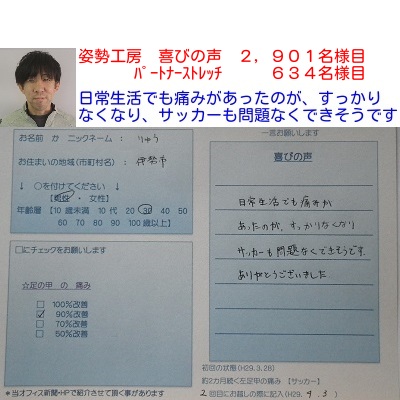 姿勢工房 喜びの声 2，901名様目
ﾊﾟｰﾄﾅｰｽﾄﾚｯﾁ 634名様目
日常生活でも痛みがあったのが、すっかり
なくなり、サッカーも問題なくできそうです
お名前 か ニックネーム： りゅう
お住まいの地域(市町村名) 伊勢市
↓ ○を付けてください ↓
【男性 ・ 女性】
年齢層 【10 歳未満 10 代 20 30 40 50
60 70 80 90 100 歳以上】
□にチェックをお願いします
☆足の甲 の 痛み
□ 100%改善
☑ 90%改善
□ 70%改善
□ 50%改善
＊当オフィス新聞・HPで紹介させて頂く事があります
一言お願いします
喜びの声
日常生活でも痛みが
あったのが、すっかりなくなり
サッカーも問題なくできそうです
ありがとうございました
初回の状態(H29.3.28)
約2カ月続く左足甲の痛み 【サッカー】
2回目にお越しの際に記入(H29. 4. 3)